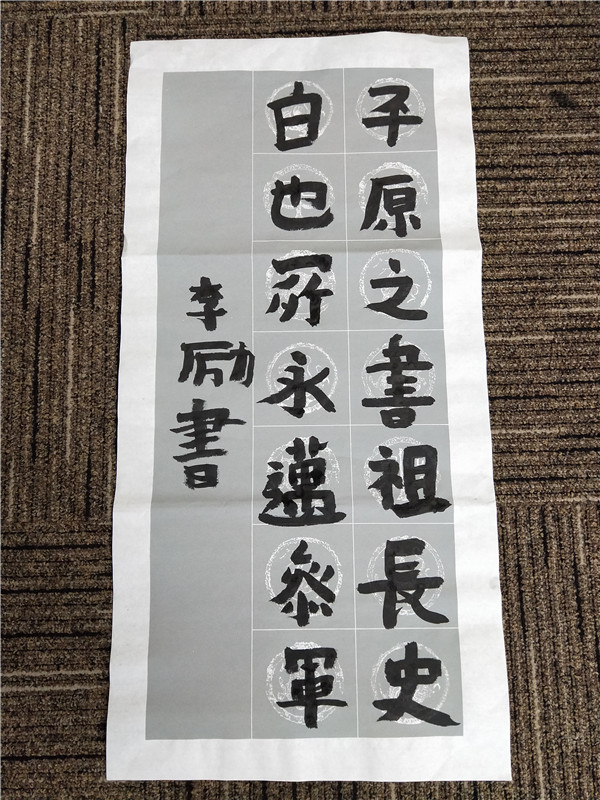 子原之書祖長史
白也所永邁叅軍
李励書